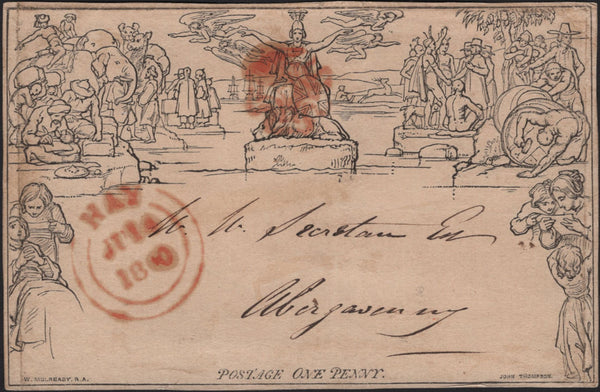 HAY
JU 14
1840
W. W. Secretan Esq
Abergavenny
POSTAGE ONE PENNY.
W. MULREADY. R.A.
JOHN THOMPSON.